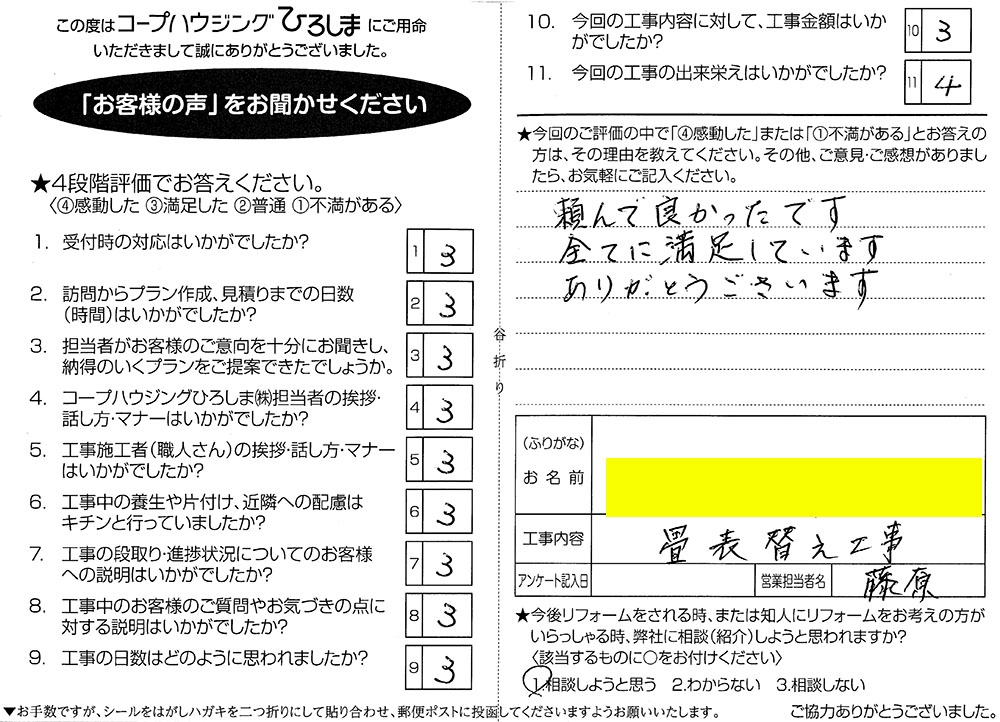 この度はコープハウジングひろしまにご用命
いただきまして誠にありがとうございました。
「お客様の声」をお聞かせください
★4段階評価でお答えください。
〈④感動した ③満足した ②普通 ①不満がある〉
1. 受付時の対応はいかがでしたか?
1 3
2. 訪問からプラン作成、見積りまでの日数
（時間）はいかがでしたか?
2 3
3. 担当者がお客様のご意向を十分にお聞きし、
納得のいくプランをご提案できたでしょうか。
3 3
4. コープハウジングひろしま㈱担当者の挨拶・
話し方・マナーはいかがでしたか?
4 3
5. 工事施工者（職人さん）の挨拶・話し方・マナー
はいかがでしたか?
5 3
6. 工事中の養生や片付け、近隣への配慮は
キチンと行っていましたか?
6 3
7. 工事の段取り・進捗状況についてのお客様
への説明はいかがでしたか?
7 3
8. 工事中のお客様のご質問やお気づきの点に
対する説明はいかがでしたか?
8 3
9. 工事の日数はどのように思われましたか?
9 3
▼お手数ですが、シールをはがしハガキを二つ折りにして貼り合わせ、郵便ポストに投函してくださいますようお願いいたします。
谷折り
10. 今回の工事内容に対して、工事金額はいか
がでしたか?
10 3
11. 今回の工事の出来栄えはいかがでしたか?
11 4
★今回のご評価の中で「④感動した」または「①不満がある」とお答えの
方は、その理由を教えてください。その他、ご意見・ご感想がありまし
たら、お気軽にご記入ください。
頼んで良かったです
全てに満足しています
ありがとうございます
（ふりがな）
お名前
工事内容 畳表替え工事
アンケート記入日 営業担当者名 藤原
★今後リフォームをされる時、または知人にリフォームをお考えの方が
いらっしゃる時、弊社に相談（紹介）しようと思われますか?
〈該当するものに○をお付けください〉
1.相談しようと思う 2.わからない 3.相談しない
ご協力ありがとうございました。